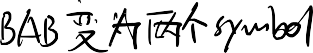 BAB变为两个symbol